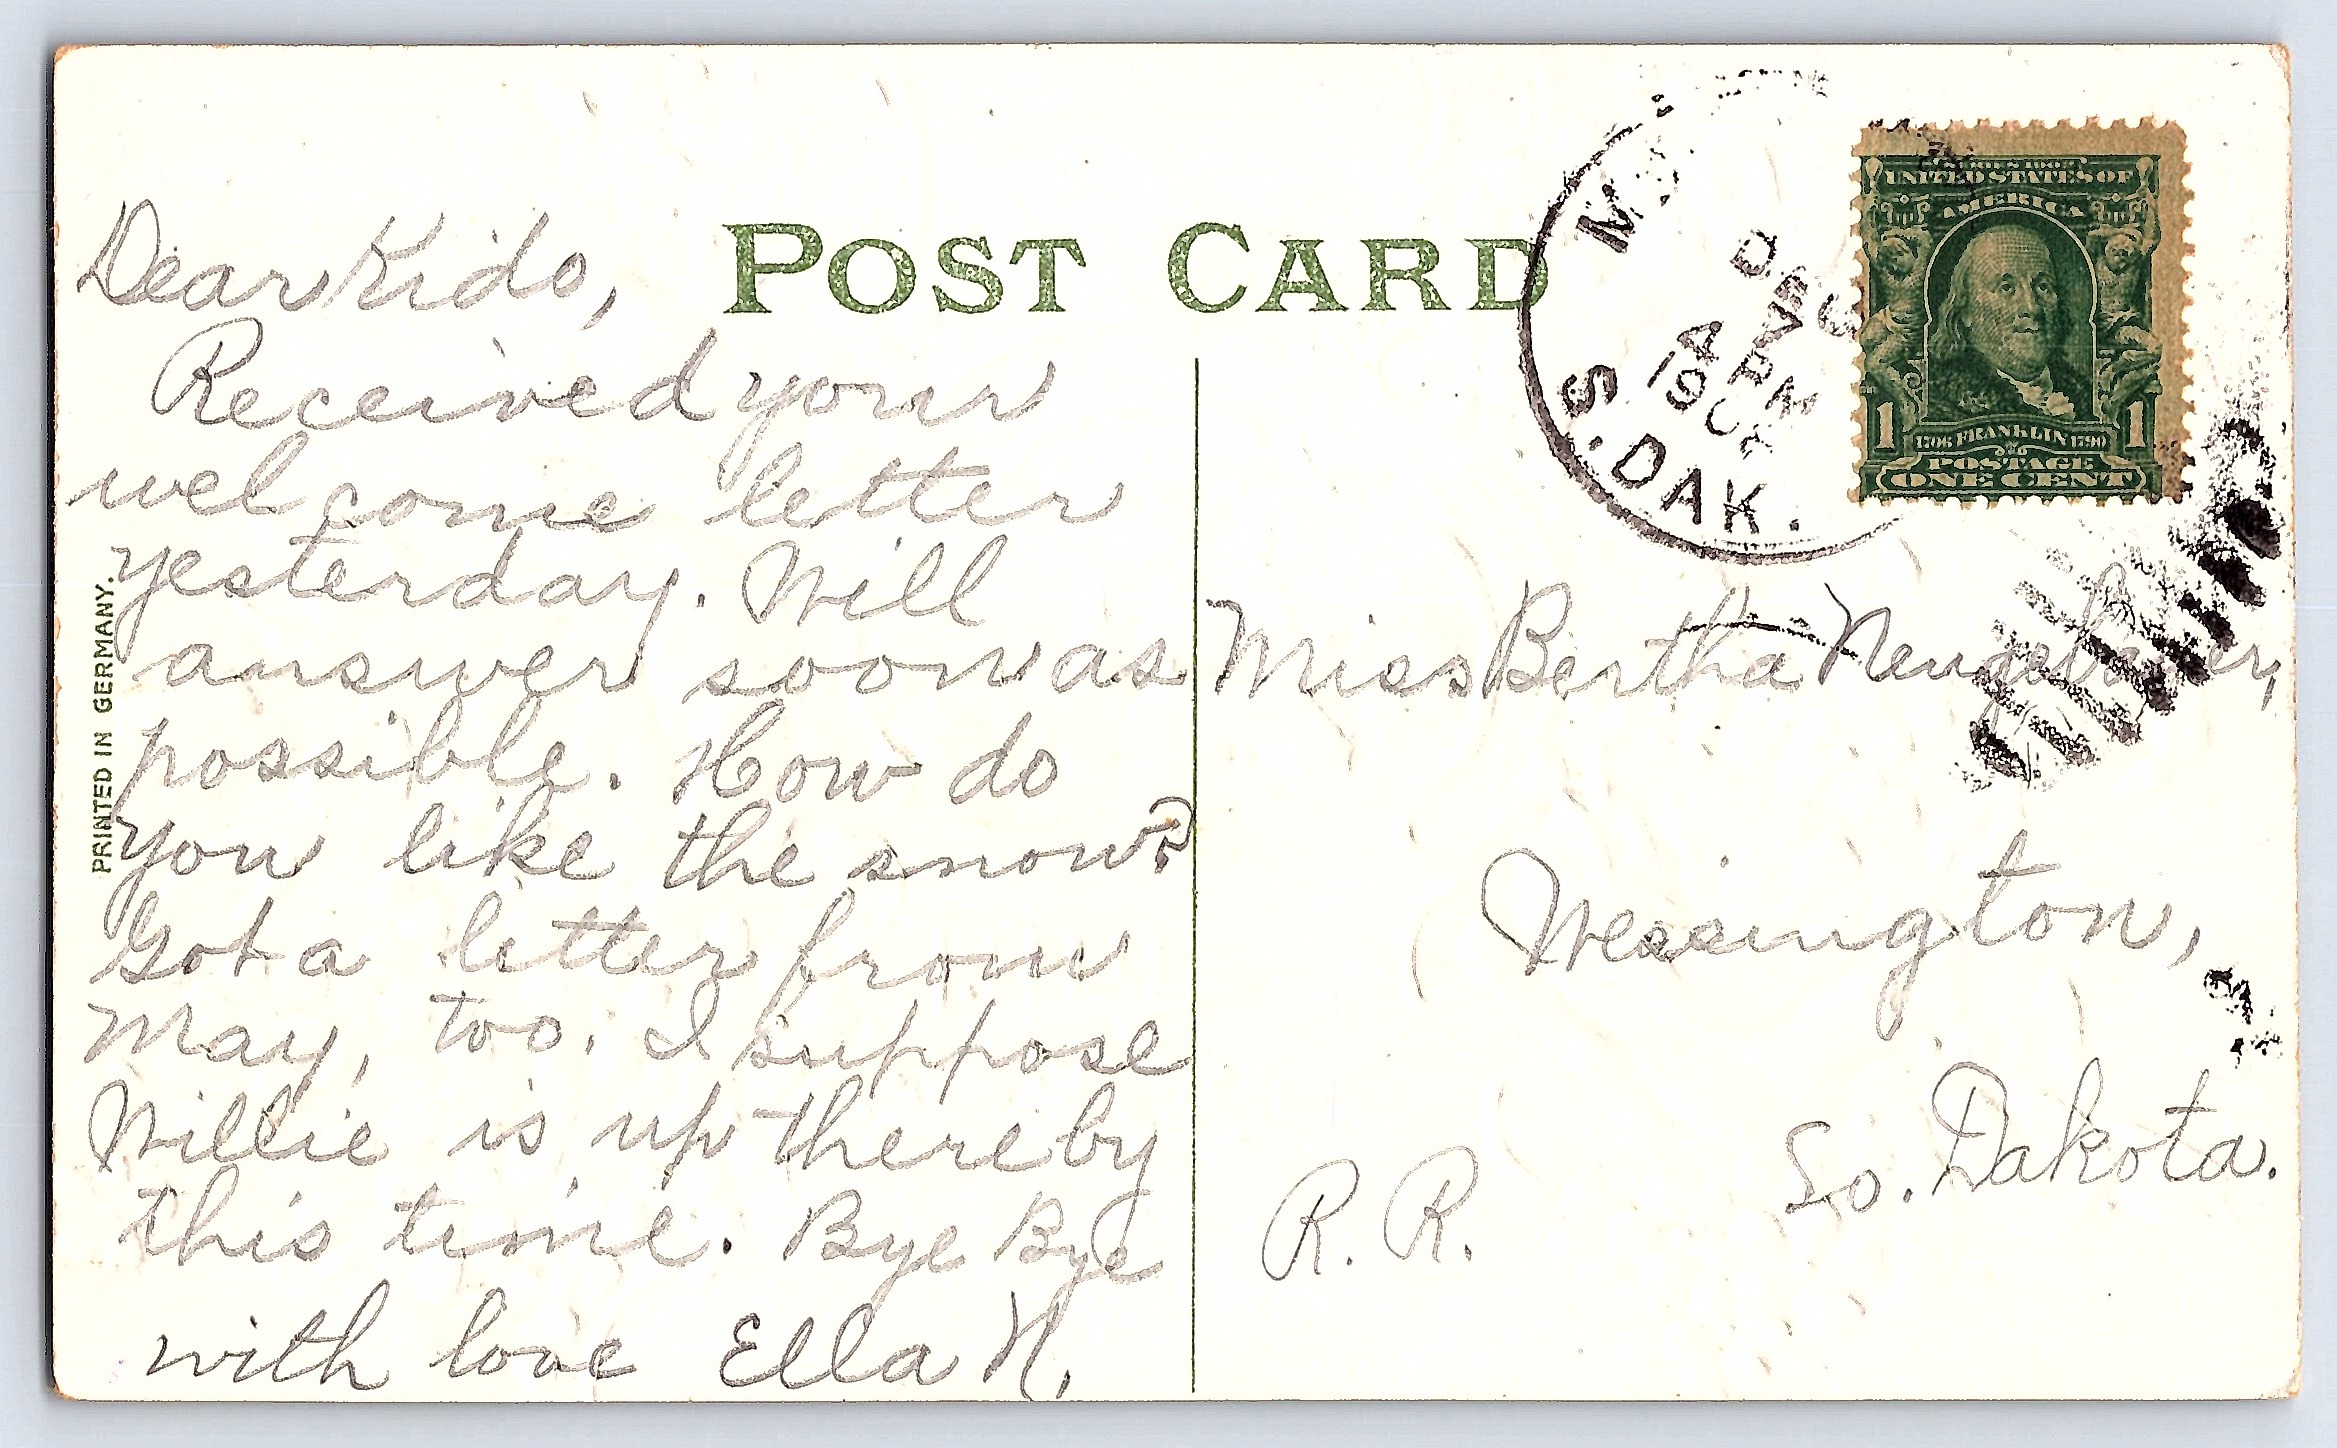 POST CARD
PRINTED IN GERMANY.
Dear Kido,
Received your
welcome letter
yesterday. Will
answer soon as
possible. How do
you like the snow?
Got a letter from
May, too. I suppose
Willie is up there by
this time. Bye Bye
with love Ella N.
M
DEC
7
4 PM
190
S. DAK.
SERIES 1902
UNITED STATES OF
AMERICA
1 1
1706 FRANKLIN 1790
POSTAGE
ONE CENT
Miss Bertha Neugebauer,
Wessington,
So. Dakota.
R. R.